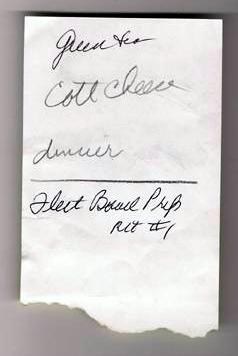 Green tea
Cott Cheese
dinner
Fleet Bowel Prep
Kit #1